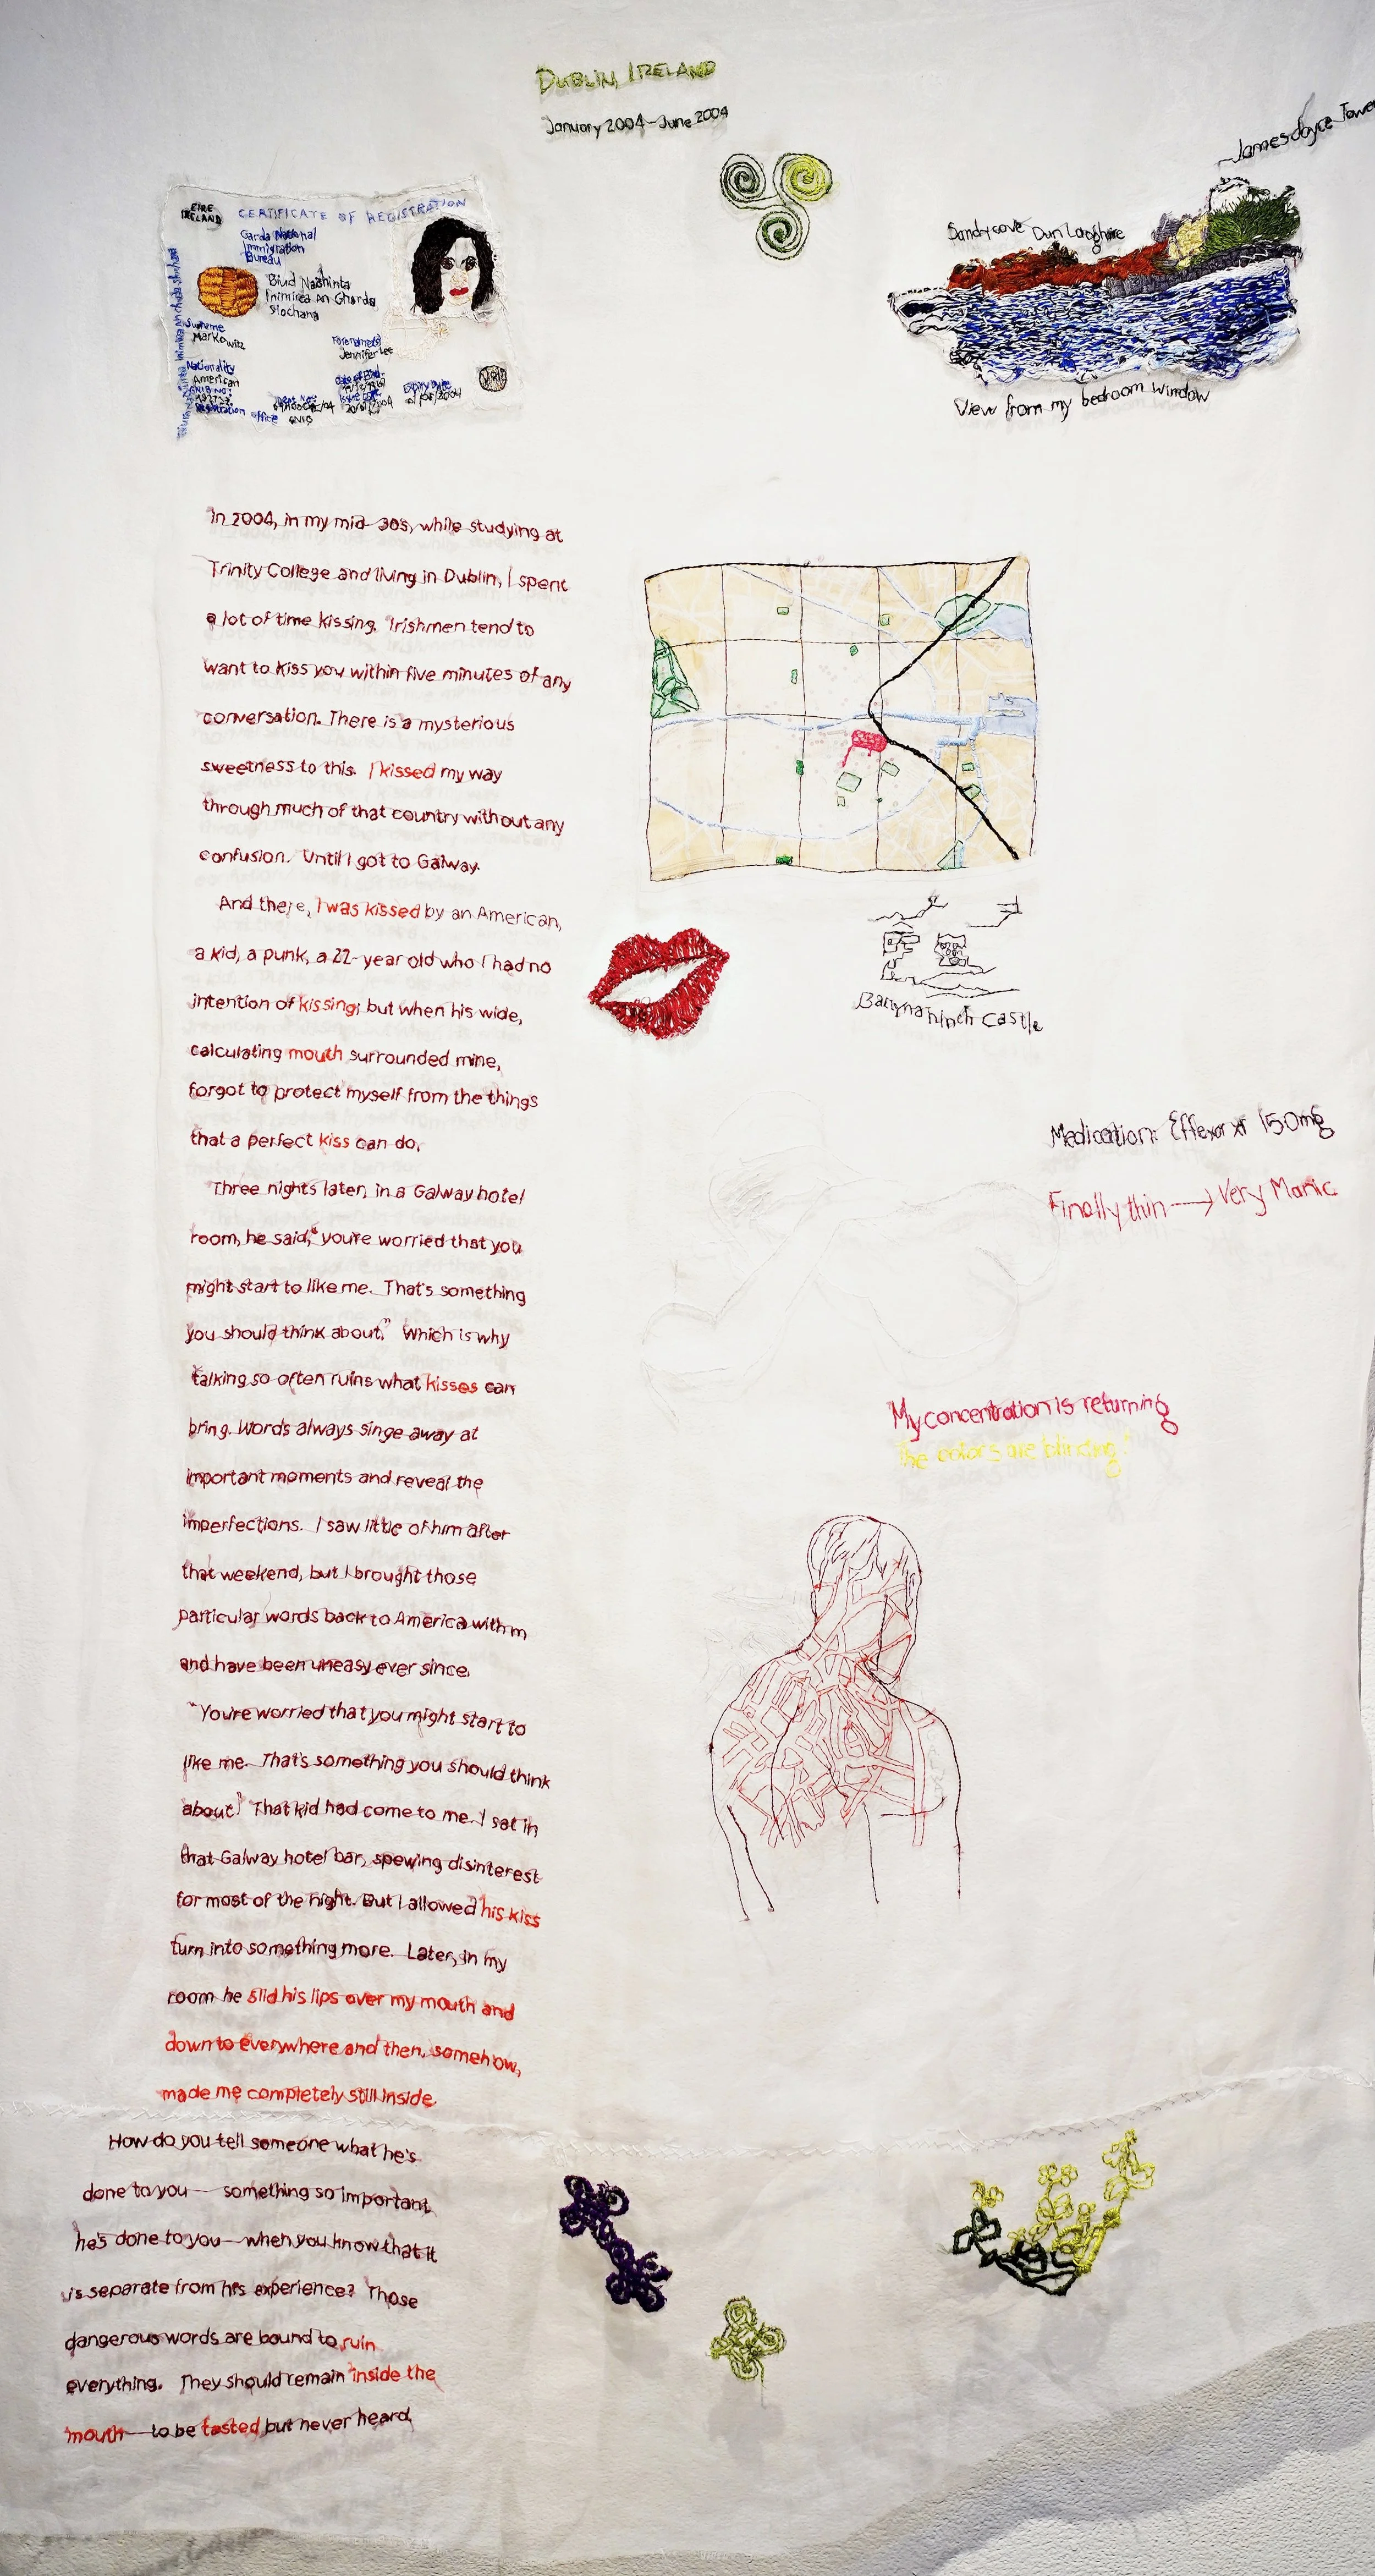 DUBLIN, IRELAND
January 2004-June 2004
James Joyce Tower
EIRE
IRELAND
CERTIFICATE OF REGISTRATION
Garda National
Immigration
Bureau
Biúd Naisiúnta
Inimirce An Gharda
Siochana
Surname
Markowitz
Forename(s)
Jennifer Lee
Nationality
American
Date of Birth:
Expiry Date
Registration office
GNIB
Sandycove Dun Laoghaire
View from my bedroom window
In 2004, in my mid-30s, while studying at
Trinity College and living in Dublin, I spent
a lot of time kissing. Irishmen tend to
want to kiss you within five minutes of any
conversation. There is a mysterious
sweetness to this. I kissed my way
through much of that country without any
confusion. Until I got to Galway.
And there, I was kissed by an American,
a kid, a punk, a 22-year old who I had no
intention of kissing; but when his wide,
calculating mouth surrounded mine,
forgot to protect myself from the things
that a perfect kiss can do.
Three nights later, in a Galway hotel
room, he said, "you're worried that you
might start to like me. That's something
you should think about." Which is why
talking so often ruins what kisses can
bring. Words always singe away at
important moments and reveal the
imperfections. I saw little of him after
that weekend, but I brought those
particular words back to America with m
and have been uneasy ever since.
"You're worried that you might start to
like me. That's something you should think
about." That kid had come to me. I sat in
that Galway hotel bar, spewing disinterest
for most of the night. But I allowed his kiss
turn into something more. Later, in my
room he slid his lips over my mouth and
down to everywhere and then, somehow,
made me completely still inside.
How do you tell someone what he's
done to you— something so important
he's done to you—when you know that it
is separate from his experience? Those
dangerous words are bound to ruin
everything. They should remain inside the
mouth—to be tasted but never heard.
Ballynahinch Castle
Medication: Effexor xr 150mg
Finally thin → Very Manic
My concentration is returning
"The colors are blinding."